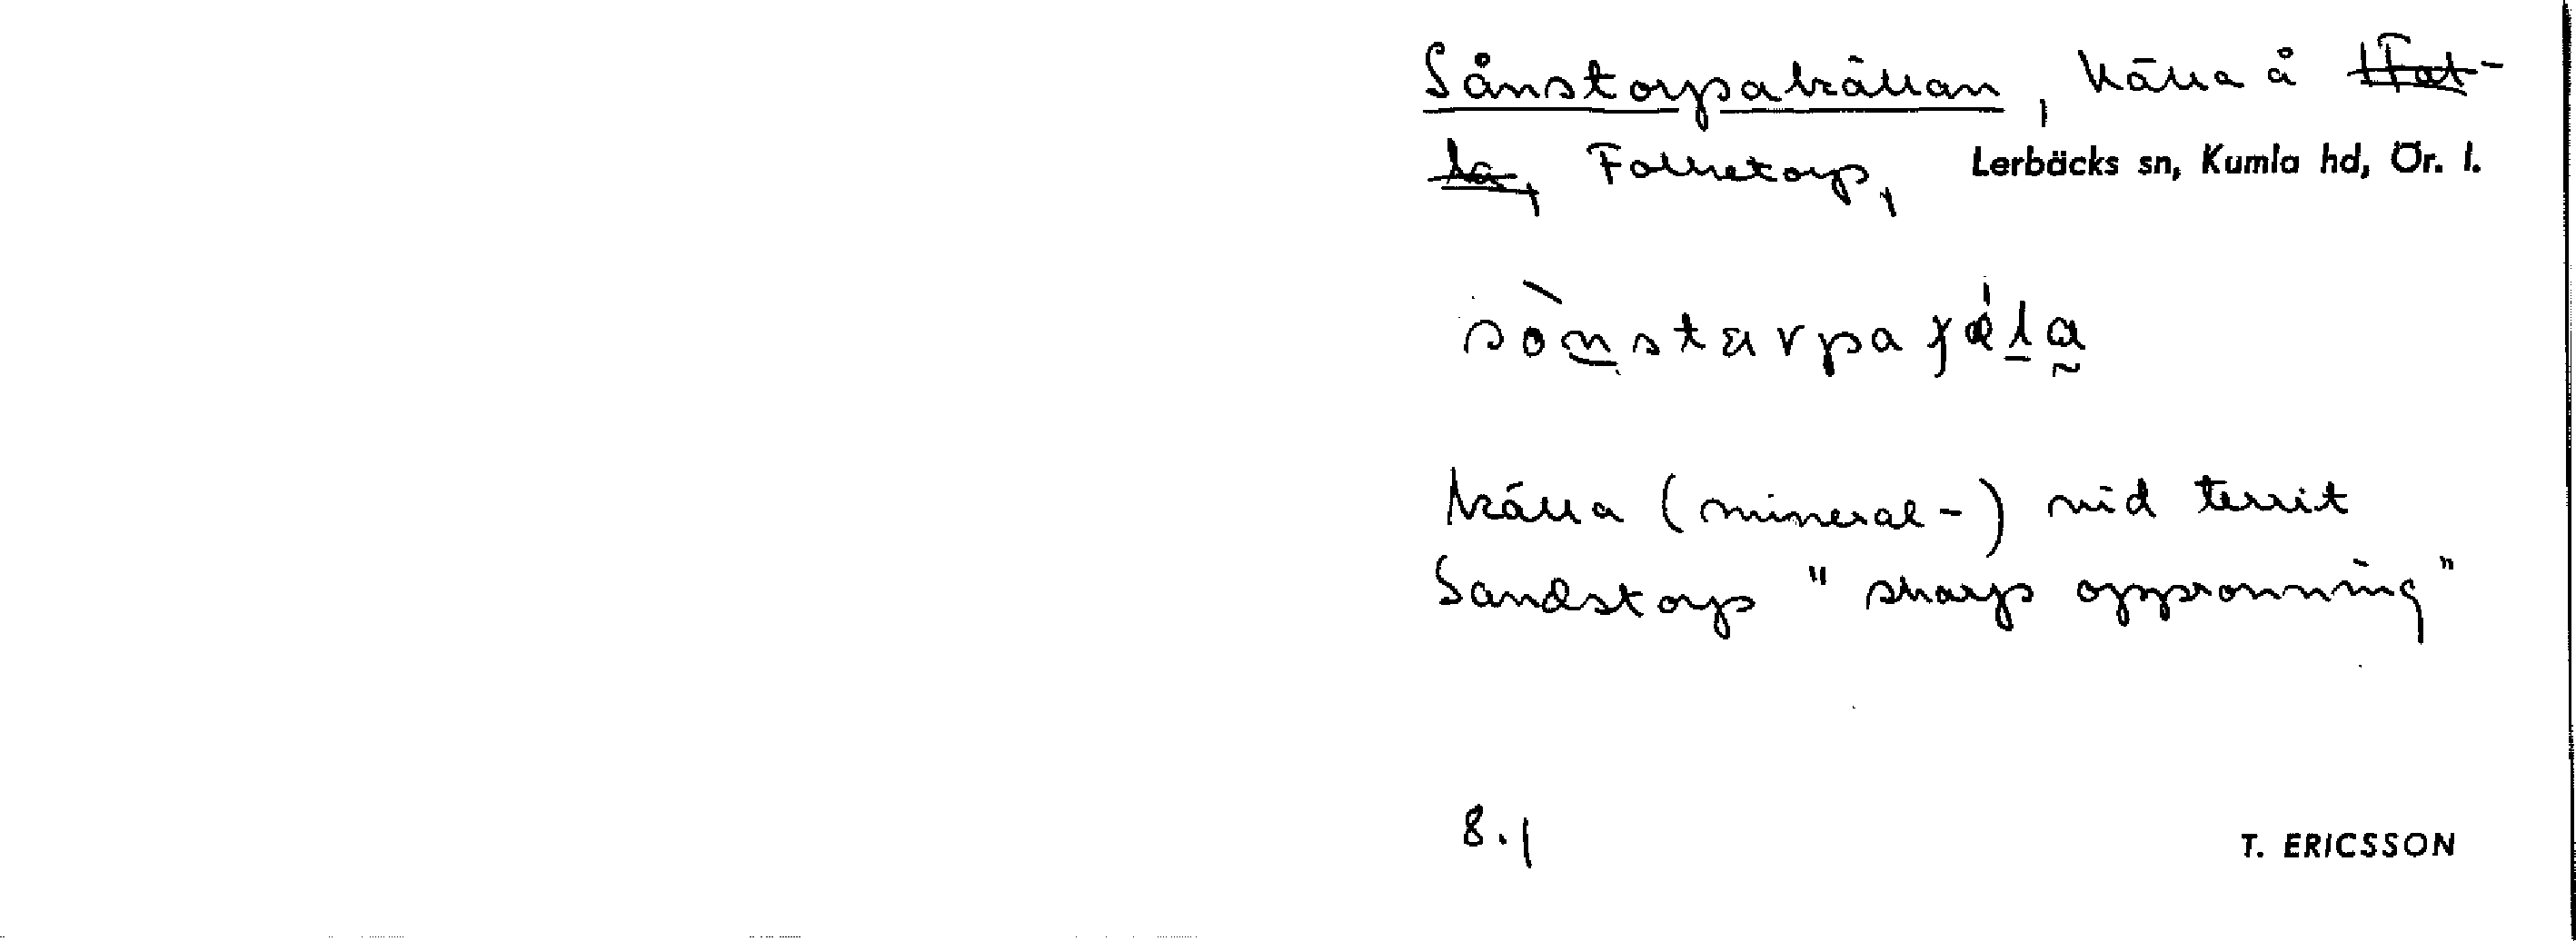 Sånstorpakällan, källa å
Folketorp, Lerbäcks sn, Kumla hd, Ör. l.
källa (mineral-) vid territ
Sandstorp "skarp opprönning"
8.1
T. ERICSSON